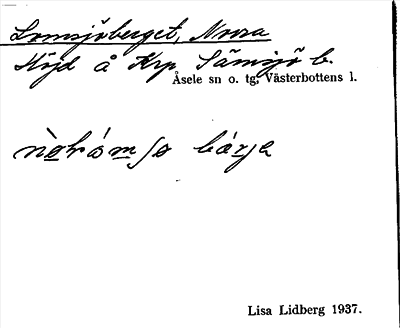 Lomsjöberget, Norra
Höjd å Krp Sämsjö b.
Åsele sn o. tg, Västerbottens l.
bárja
Lisa Lidberg 1937.